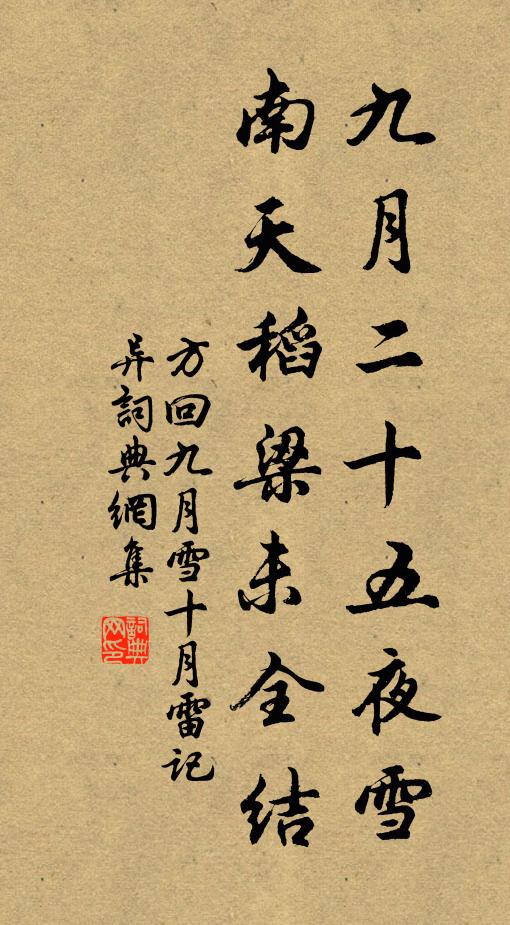 九月二十五夜雪
南天稻粱未全结
方回九月雪十月雷记
异詞典網集
詞典网印